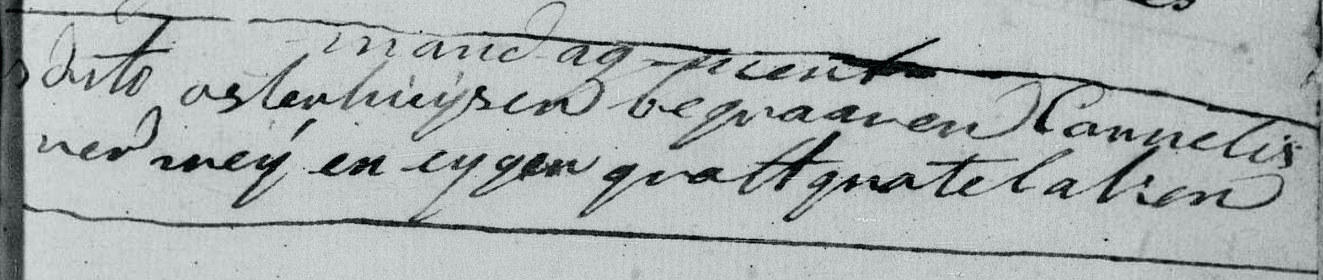 mandag
dito osterhuijsen begraaven Cornnelis
vermeij en eygen graft grate laken